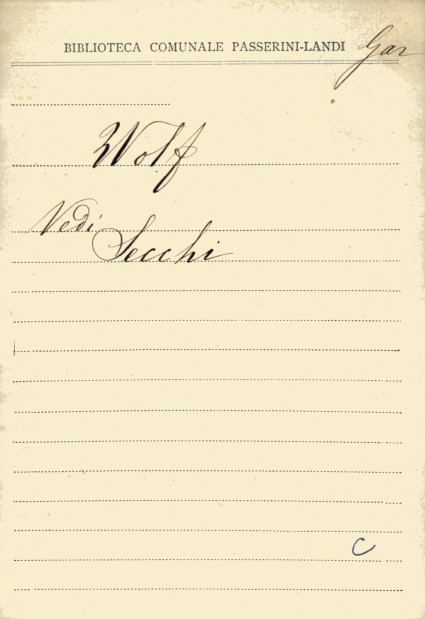 BIBLIOTECA COMUNALE PASSERINI-LANDI
Gar
Wolf
Vedi
Secchi
C